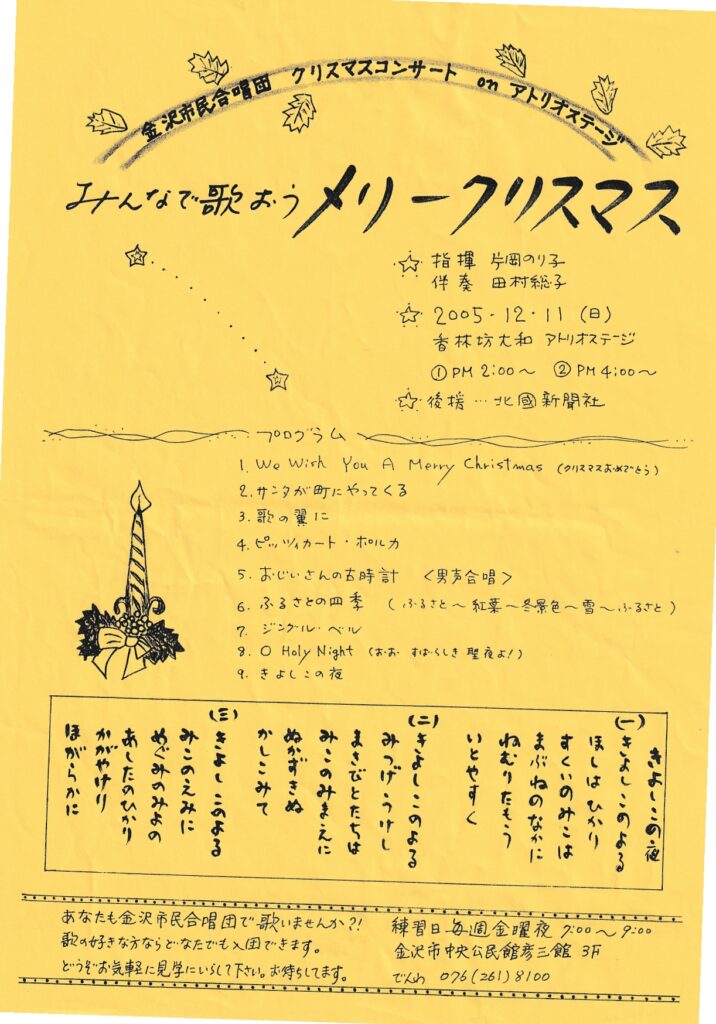 金沢市民合唱団 クリスマスコンサート on アトリオステージ
みんなで歌おう メリークリスマス
☆ 指揮 片岡のり子
伴奏 田村総子
☆ 2005・12・11 (日)
香林坊大和 アトリオステージ
①PM 2:00～ ②PM 4:00～
☆ 後援…北國新聞社
プログラム
1. We Wish You A Merry Christmas (クリスマスおめでとう)
2. サンタが町にやってくる
3. 歌の翼に
4. ピッツィカート・ポルカ
5. おじいさんの古時計 <男声合唱>
6. ふるさとの四季 (ふるさと～紅葉～冬景色～雪～ふるさと)
7. ジングル・ベル
8. O Holy Night (おお すばらしき 聖夜よ!)
9. きよしこの夜
きよしこの夜
(一) きよしこのよる
ほしは ひかり
すくいのみこは
まぶねのなかに
ねむりたもう
いとやすく
(二) きよしこのよる
みつげうけし
まきびとたちは
みこのみまえに
ぬかずきぬ
かしこみて
(三) きよし このよる
みこのえみに
めぐみのみよの
あしたのひかり
かがやけり
ほがらかに
あなたも金沢市民合唱団で歌いませんか?!
歌の好きな方ならどなたでも入団できます。
どうぞお気軽に見学にいらして下さい。お待ちしてます。
練習日 毎週金曜夜 7:00～9:00
金沢市中央公民館彦三館 3F
でんわ 076(261)8100